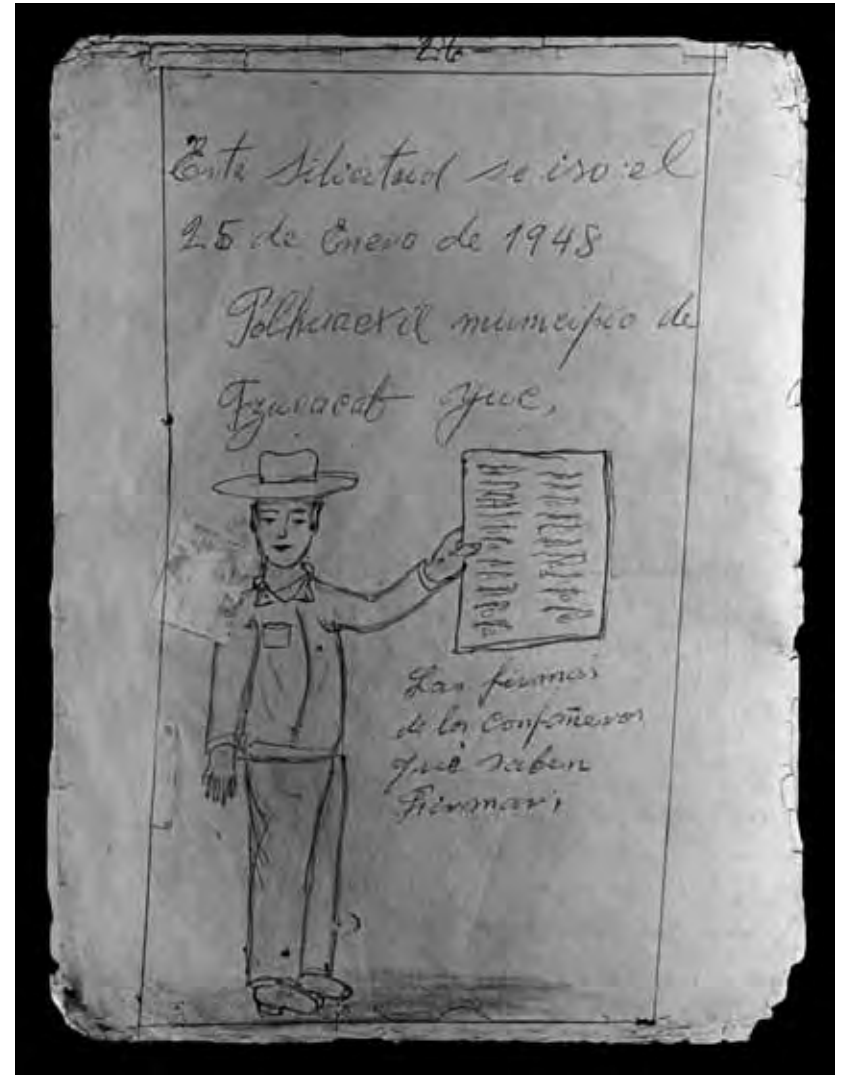 26
Esta Silicitud se iso: el
25 de Enero de 1948
Polhuacxil municipio de
Tzucacab Yuc,
Las firmas
de los Conpañeros
que saben
Firmar;